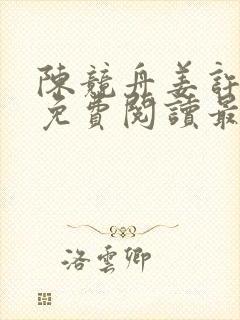 陳競舟姜
免費閱讀最
洛雲卿